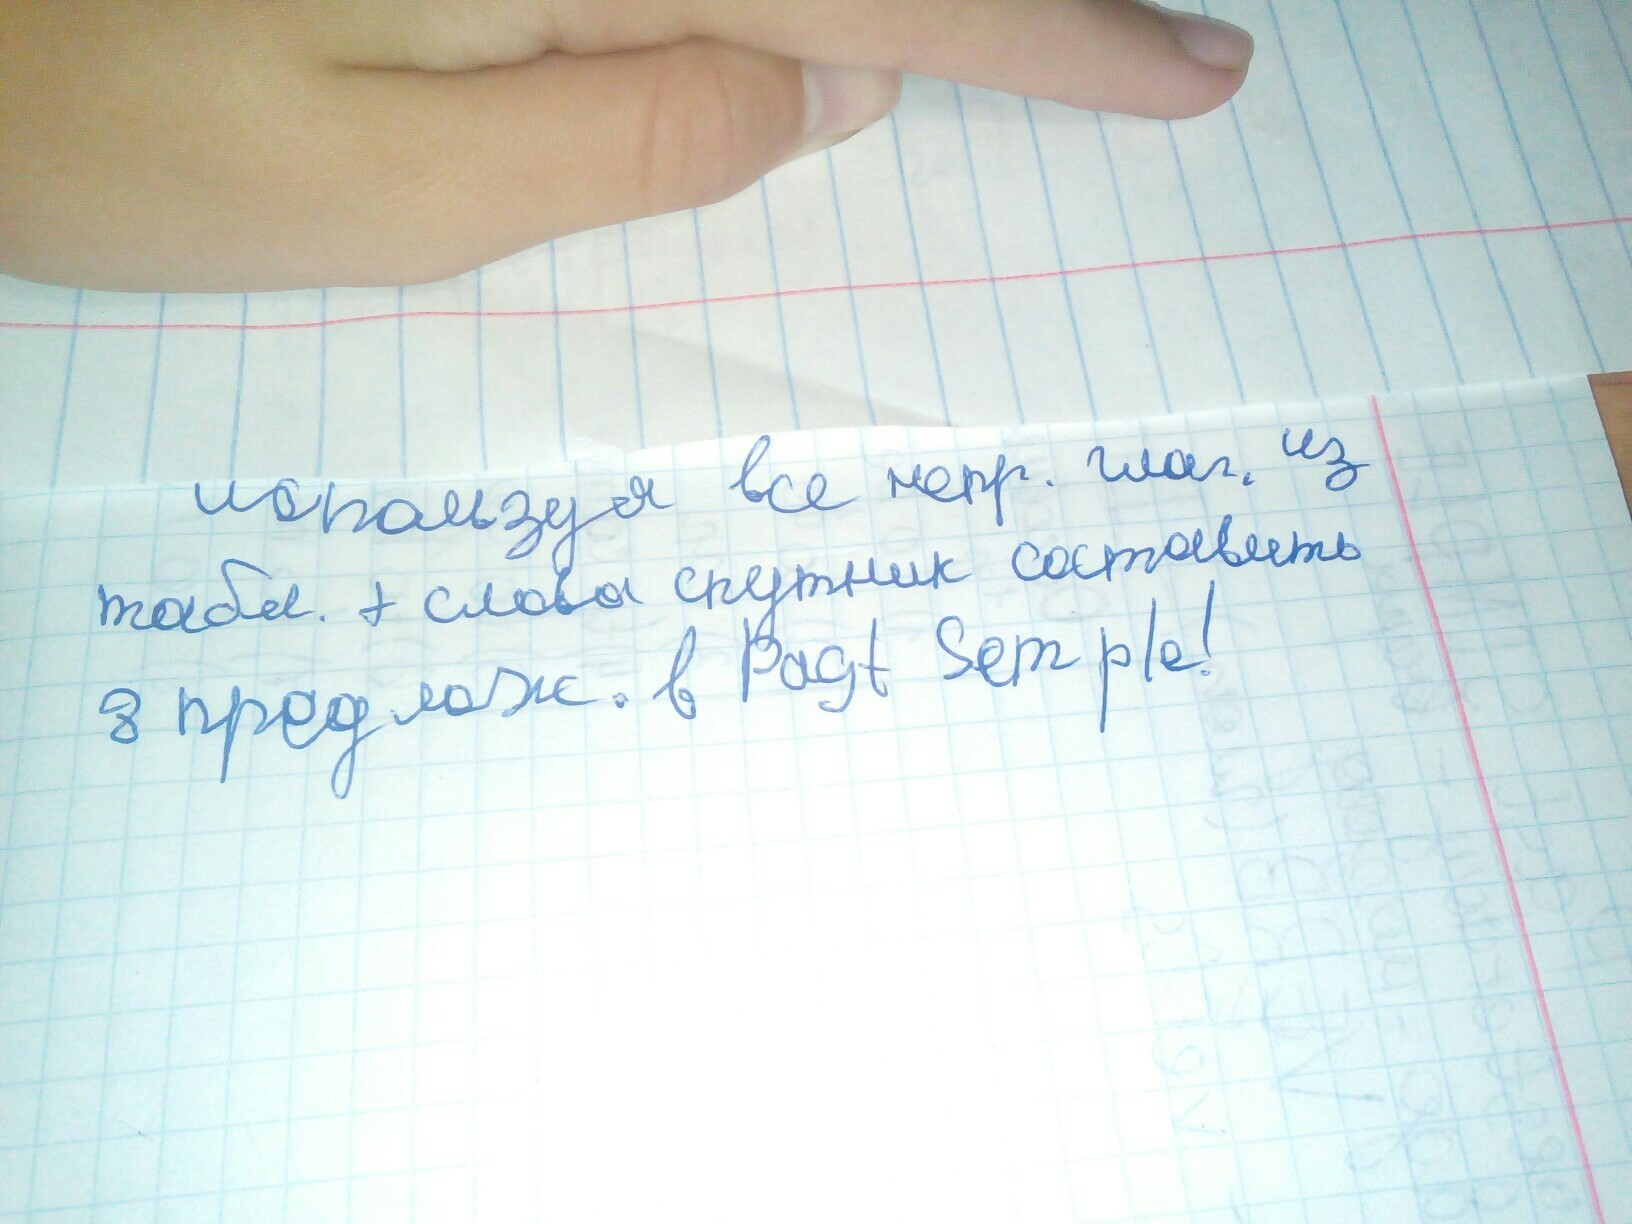 используя все непр. глаг. из
табл. + слова спутник составить
8 предлож. в Pagt Semple!